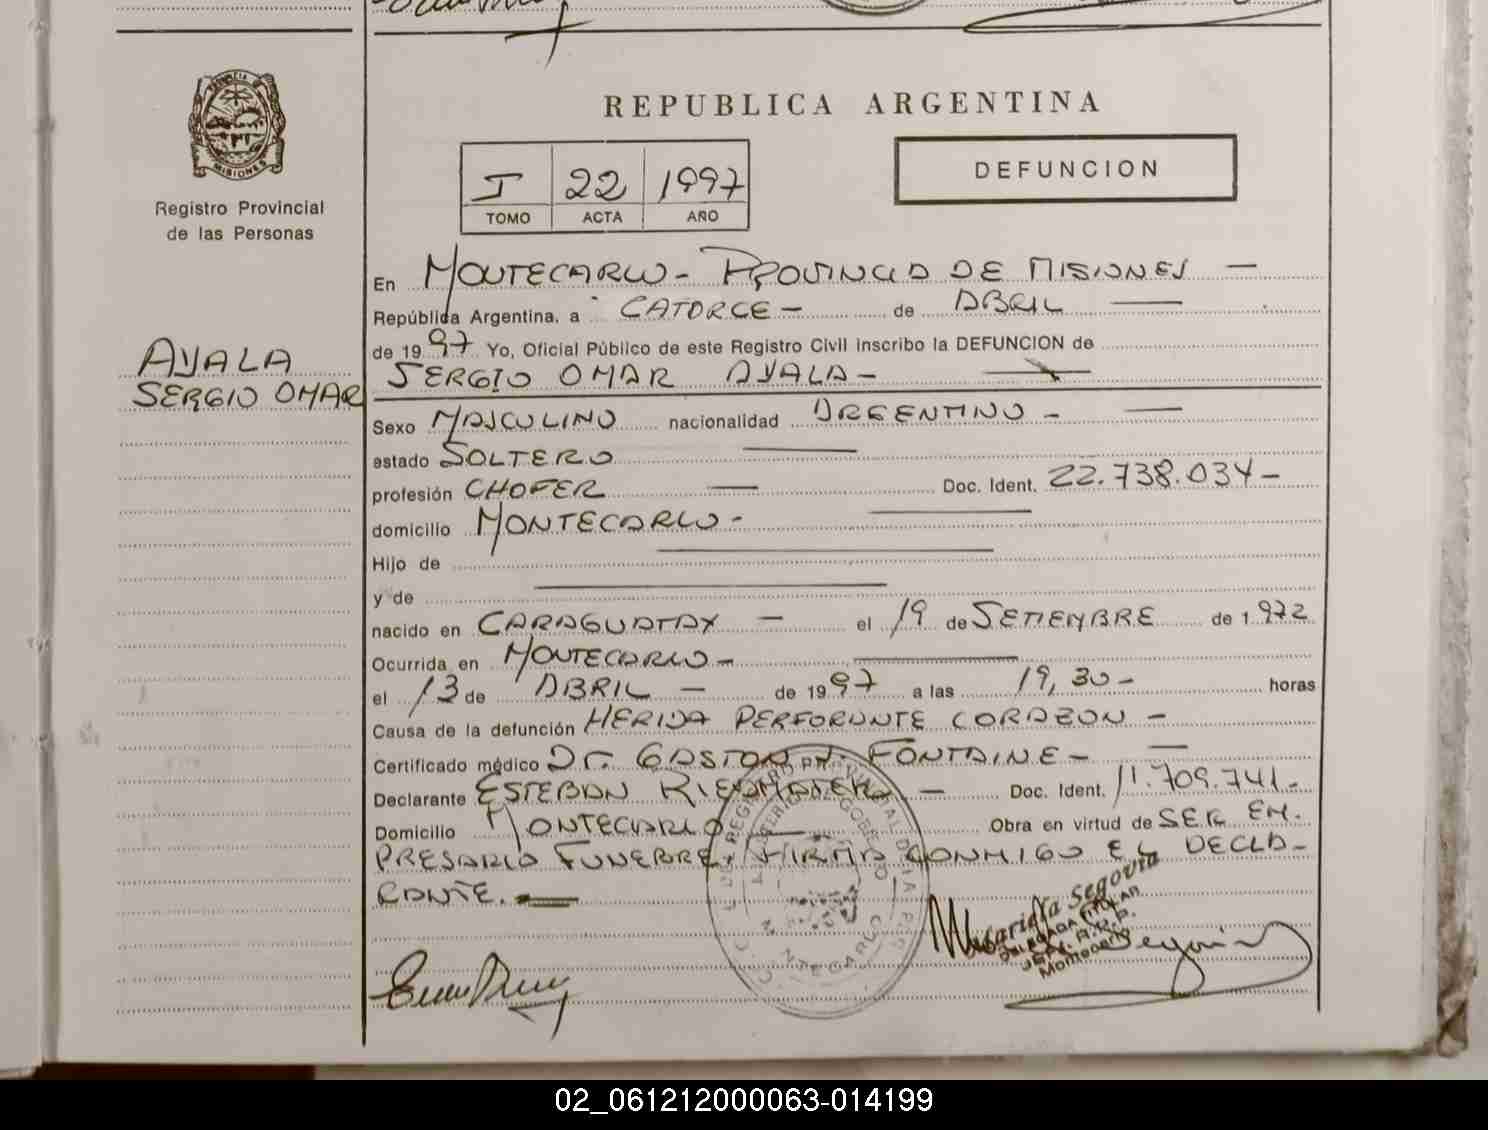 REPUBLICA ARGENTINA
PROVINCIA DE
MISIONES
Registro Provincial
de las Personas
I 22 1997
TOMO ACTA AÑO
DEFUNCION
AYALA
SERGIO OMAR
En MONTECARLO - PROVINCIA DE MISIONES —
República Argentina, a CATORCE — de ABRIL —
de 1997 Yo, Oficial Público de este Registro Civil inscribo la DEFUNCION de
SERGIO OMAR AYALA —
Sexo MASCULINO nacionalidad ARGENTINO - —
estado SOLTERO —
profesión CHOFER — Doc. Ident. 22.738.034 -
domicilio MONTECARLO - —
Hijo de —
y de —
nacido en CARAGUATAY — el 19 de SETIEMBRE de 1.972
Ocurrida en MONTECARLO — —
el 13 de ABRIL — de 1997 a las 19,30 - horas
Causa de la defunción HERIDA PERFORANTE CORAZON -
Certificado médico Dr. GASTON A. FONTAINE - —
Declarante ESTEBAN — Doc. Ident. 11.709.741 -
Domicilio MONTECARLO — Obra en virtud de SER EM-
PRESARIO FUNEBRE, FIRMA CONMIGO EL DECLA-
RANTE. —
Segovia
DELEGADA TITULAR
Montecarlo
MONTECARLO
02_061212000063-014199